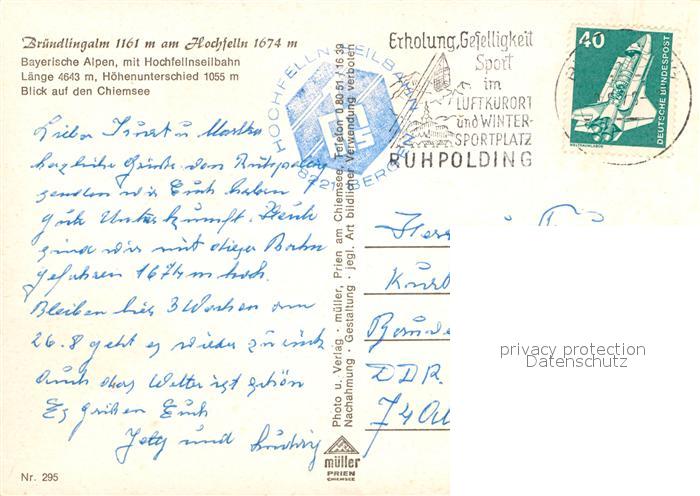 Bründlingalm 1161 m am Hochfelln 1674 m
Bayerische Alpen, mit Hochfellnseilbahn
Länge 4643 m, Höhenunterschied 1055 m
Blick auf den Chiemsee
Liebe Kurt u. Martha
herzliche Grüße von Ruhpolding
senden wir Euch haben
gute Unterkunft. Heute
sind wir mit dieser Bahn
gefahren 1674 m hoch.
Bleiben hier 3 Wochen am
26.8 geht es wieder zurück
Auch das Wetter ist schön
Es grüßen Euch
und Ludwig
Nr. 295
HOCHFELLN-SEILBAHN
8221 BERGEN
Photo u. Verlag · müller, Prien am Chiemsee, Telefon 0 80 51 / 16 39
Nachahmung · Gestaltung · jegl. Art bildlicher Verwendung verboten
müller
PRIEN
CHIEMSEE
Erholung, Geselligkeit
Sport
im
LUFTKURORT
und WINTER-
SPORTPLATZ
RUHPOLDING
40
DEUTSCHE BUNDESPOST
WELTRAUMLABOR
Kurt
DDR
privacy protection
Datenschutz